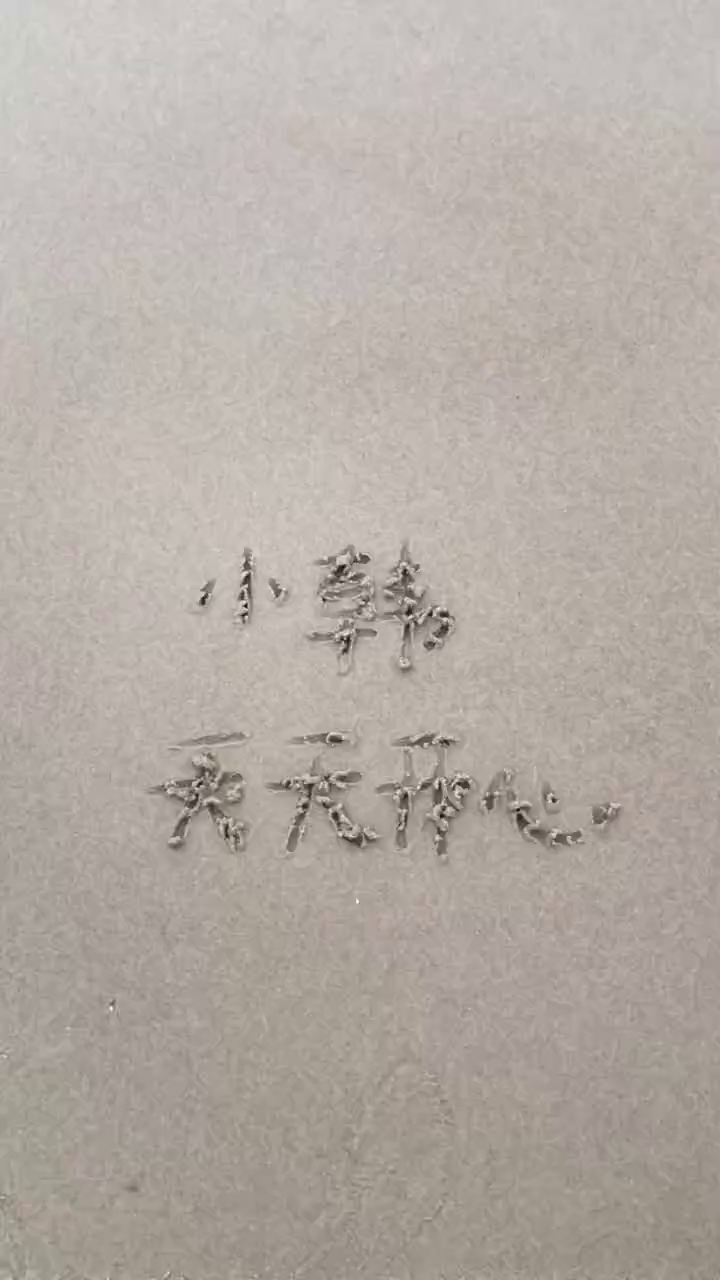 小韩
天天开心